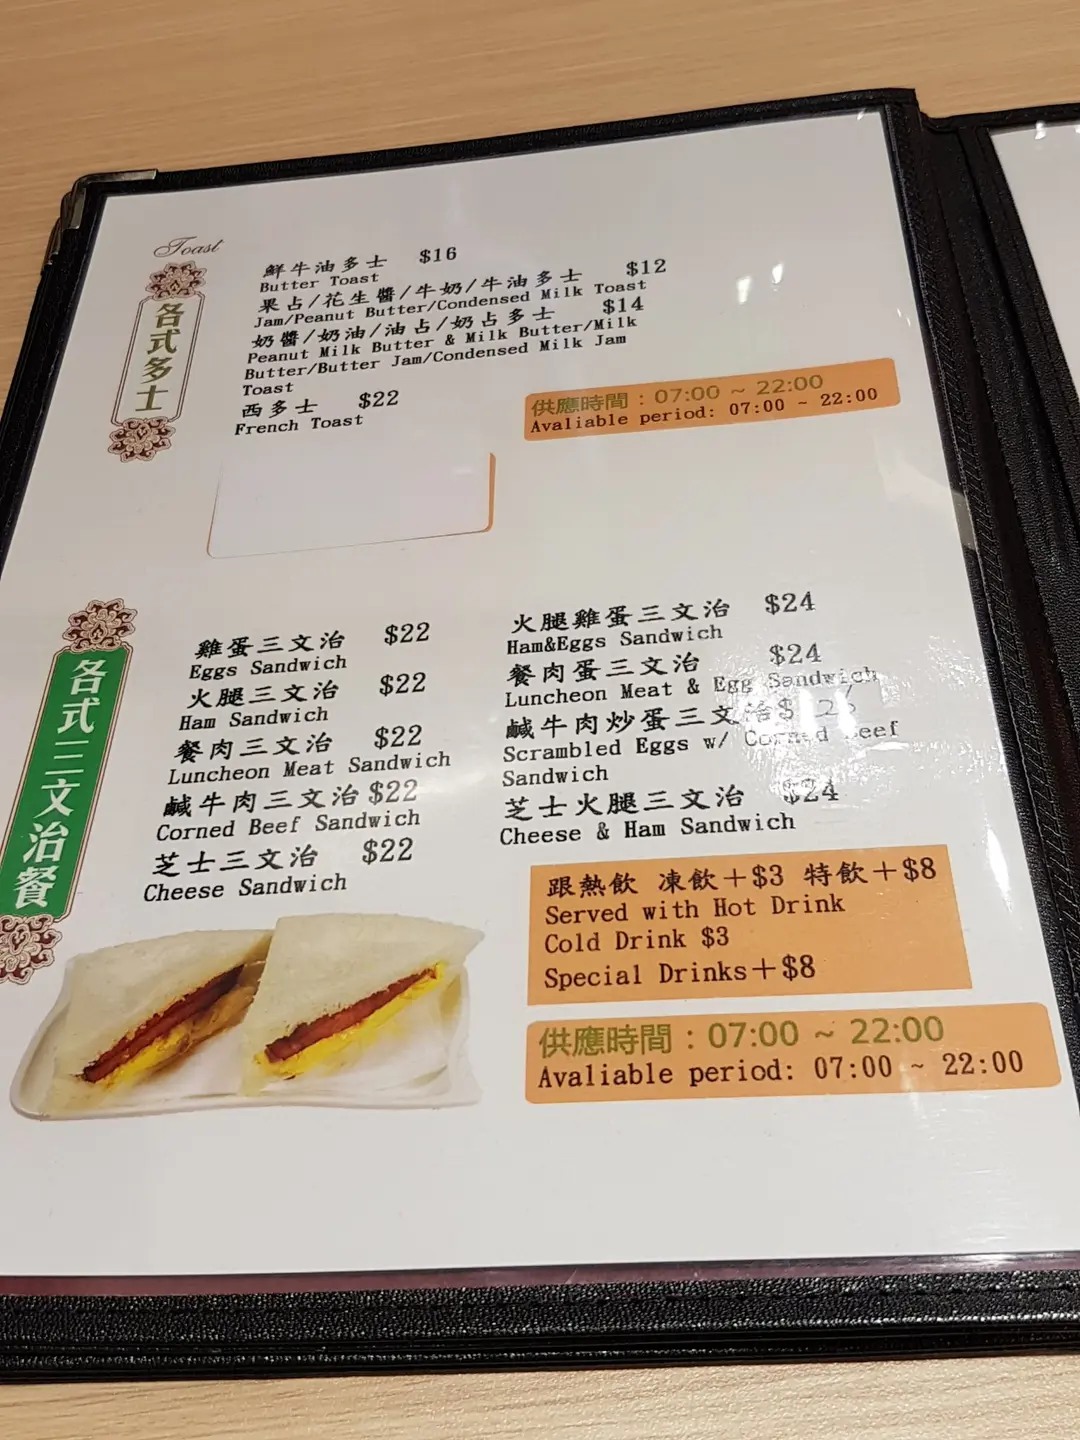 Toast
各式多士
鮮牛油多士 $16
Butter Toast
果占/花生醬/牛奶/牛油多士 $12
Jam/Peanut Butter/Condensed Milk Toast
奶醬/奶油/油占/奶占多士 $14
Peanut Milk Butter & Milk Butter/Milk
Butter/Butter Jam/Condensed Milk Jam
Toast
西多士 $22
French Toast
供應時間：07:00 ~ 22:00
Avaliable period: 07:00 ~ 22:00
各式三文治餐
雞蛋三文治 $22
Eggs Sandwich
火腿三文治 $22
Ham Sandwich
餐肉三文治 $22
Luncheon Meat Sandwich
鹹牛肉三文治 $22
Corned Beef Sandwich
芝士三文治 $22
Cheese Sandwich
火腿雞蛋三文治 $24
Ham&Eggs Sandwich
餐肉蛋三文治 $24
Luncheon Meat & Egg Sandwich
鹹牛肉炒蛋三文治
Scrambled Eggs w/ Corned Beef
Sandwich
芝士火腿三文治 $24
Cheese & Ham Sandwich
跟熱飲 凍飲＋$3 特飲＋$8
Served with Hot Drink
Cold Drink $3
Special Drinks＋$8
供應時間：07:00 ~ 22:00
Avaliable period: 07:00 ~ 22:00